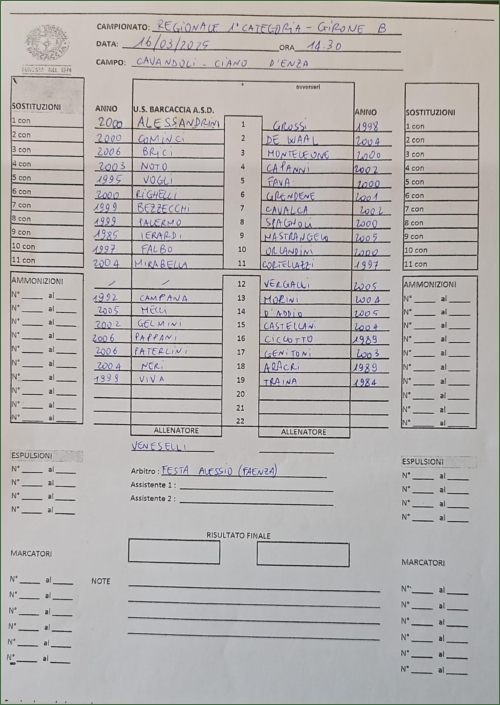 CAMPIONATO: REGIONALE 1ª CATEGORIA - GIRONE B
DATA: 16/03/2025 ORA 14.30
CAMPO: CAVANDOLI - CIANO D'ENZA
avversari
SOSTITUZIONI ANNO U.S. BARCACCIA A.S.D. ANNO SOSTITUZIONI
1 con 2000 ALESSANDRINI 1 GROSSI 1998 1 con
2 con 2000 COMINCI 2 DE WAAL 2004 2 con
3 con 2006 BRICI 3 MONTELEONE 2000 3 con
4 con 2003 NOTO 4 CAPANNI 2002 4 con
5 con 1995 VOGLI 5 FAVA 2000 5 con
6 con 2000 RIGHELLI 6 GRANDENE 2001 6 con
7 con 1999 BEZZECCHI 7 CAVALCA 2002 7 con
8 con 1999 PALERMO 8 SPAGNOLI 2000 8 con
9 con 1985 IERARDI 9 MASTRANGELO 2005 9 con
10 con 1997 FALBO 10 ORLANDINI 2000 10 con
11 con 2004 MIRABELLA 11 CORTELLAZZI 1997 11 con
AMMONIZIONI / / 12 VERGALLI 2005 AMMONIZIONI
N° al 1992 CAMPANA 13 MORINI 2004 N° al
N° al 2005 MELLI 14 D'ADDIO 2005 N° al
N° al 2002 GELMINI 15 CASTELLANI 2004 N° al
N° al 2006 PAPPANI 16 CICLOTTO 1989 N° al
N° al 2006 PATERLINI 17 GENITONI 2003 N° al
N° al 2004 NERI 18 ARACRI 1989 N° al
N° al 1998 VIVA 19 TRAINA 1984 N° al
N° al 20 N° al
N° al 21 N° al
N° al 22 N° al
ALLENATORE ALLENATORE
VENESELLI
ESPULSIONI Arbitro : FESTA ALESSIO (FAENZA) ESPULSIONI
N° al Assistente 1 : N° al
N° al Assistente 2 : N° al
N° al N° al
N° al N° al
RISULTATO FINALE
MARCATORI MARCATORI
N° al NOTE N° al
N° al N° al
N° al N° al
N° al N° al
N° al N° al
N° al N° al